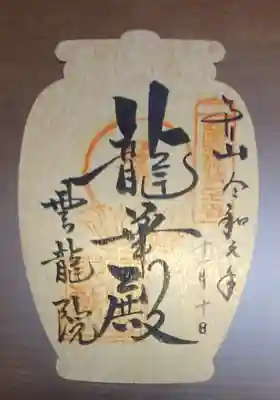 奉山 令和元年
十一月十日
龍華殿
雲龍院